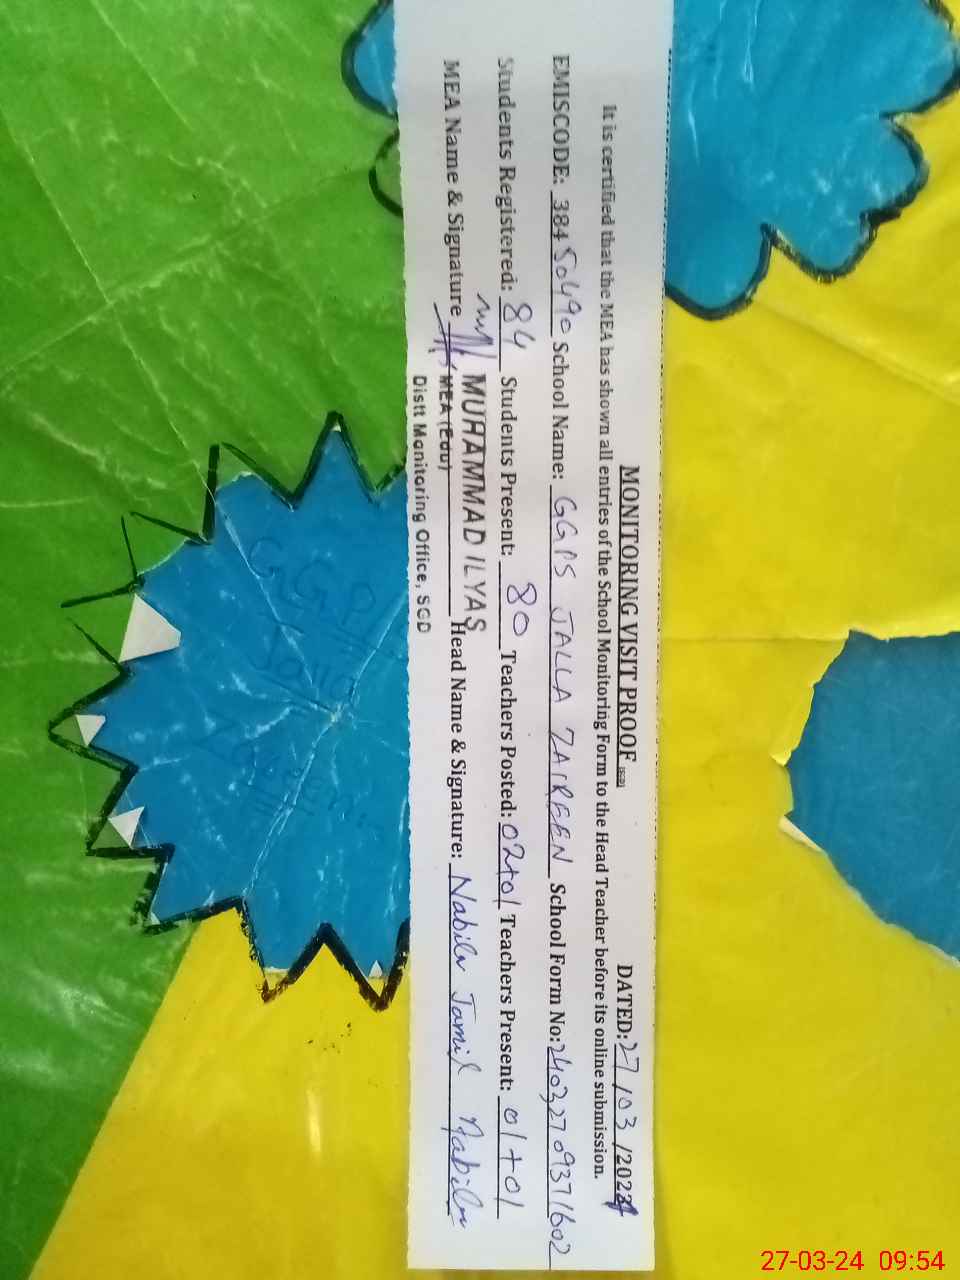 MONITORING VISIT PROOF DATED: 27/03/2024
It is certified that the MEA has shown all entries of the School Monitoring Form to the Head Teacher before its online submission.
EMISCODE: 38450490 School Name: GGPS JALLA ZAIREEN School Form No: 24032709371602
Students Registered: 84 Students Present: 80 Teachers Posted: 02+01 Teachers Present: 01+01
MEA Name & Signature MUHAMMAD ILYAS Head Name & Signature: Nabila Jamil Nabila
MEA (Edu)
Distt Monitoring Office, SGD
27-03-24 09:54